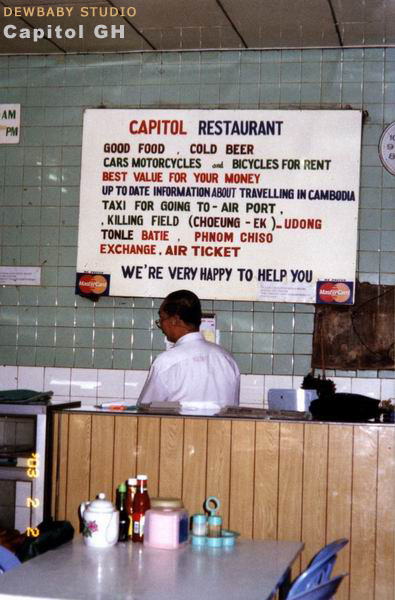 DEWBABY STUDIO
Capitol GH
AM
PM
CAPITOL RESTAURANT
GOOD FOOD , COLD BEER
CARS MOTORCYCLES and BICYCLES FOR RENT
BEST VALUE FOR YOUR MONEY
UP TO DATE INFORMATION ABOUT TRAVELLING IN CAMBODIA
TAXI FOR GOING TO - AIR PORT ,
, KILLING FIELD (CHOEUNG - EK ) - UDONG
TONLE BATIE , PHNOM CHISO
EXCHANGE . AIR TICKET
WE'RE VERY HAPPY TO HELP YOU
MasterCard
MasterCard
10
9
8
'03 2 2